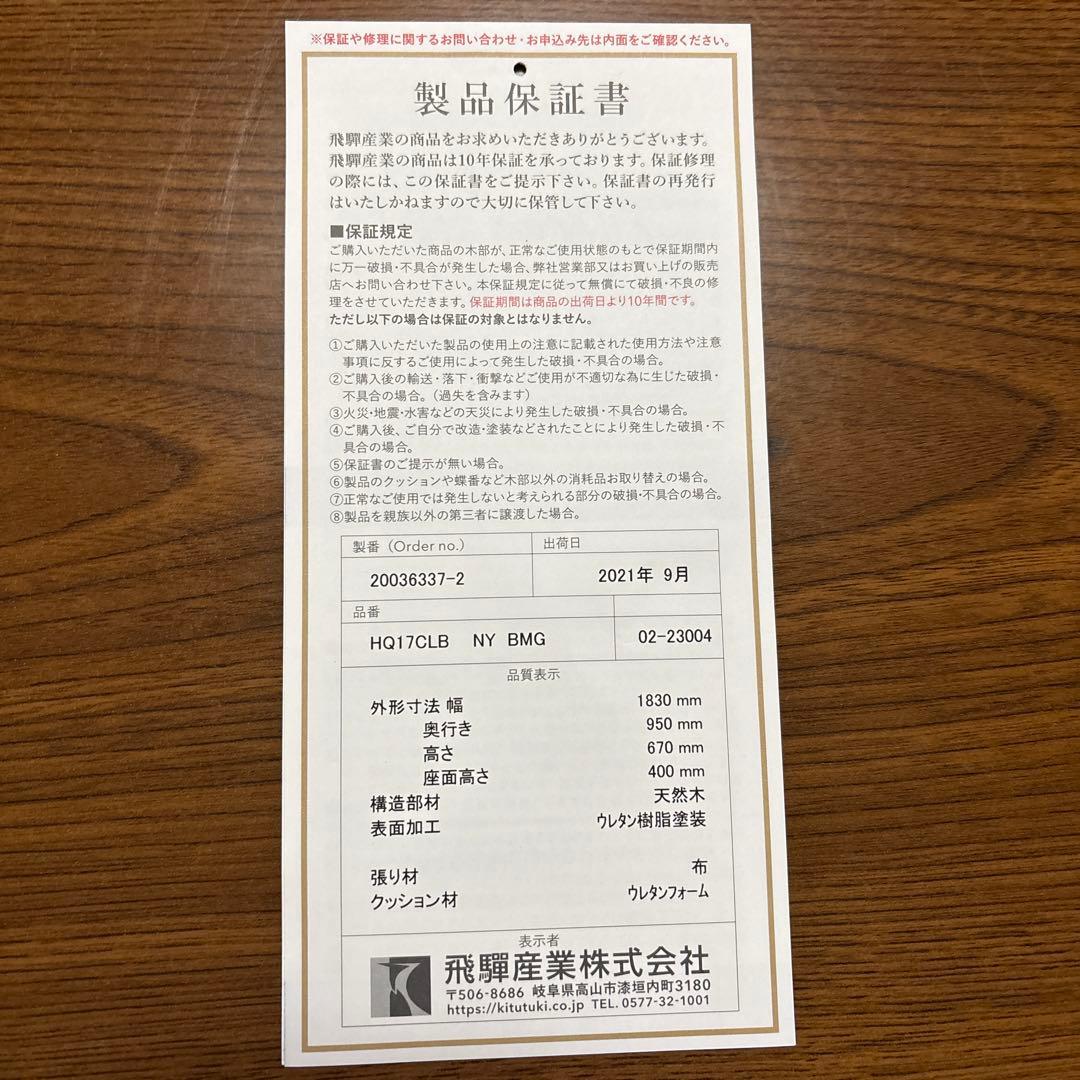 ※保証や修理に関するお問い合わせ・お申込み先は内面をご確認ください。
製品保証書
飛驒産業の商品をお求めいただきありがとうございます。
飛驒産業の商品は10年保証を承っております。保証修理
の際には、この保証書をご提示下さい。保証書の再発行
はいたしかねますので大切に保管して下さい。
■保証規定
ご購入いただいた商品の木部が、正常なご使用状態のもとで保証期間内
に万一破損・不具合が発生した場合、弊社営業部又はお買い上げの販売
店へお問い合わせ下さい。本保証規定に従って無償にて破損・不良の修
理をさせていただきます。保証期間は商品の出荷日より10年間です。
ただし以下の場合は保証の対象とはなりません。
①ご購入いただいた製品の使用上の注意に記載された使用方法や注意
事項に反するご使用によって発生した破損・不具合の場合。
②ご購入後の輸送・落下・衝撃などご使用が不適切な為に生じた破損・
不具合の場合。（過失を含みます）
③火災・地震・水害などの天災により発生した破損・不具合の場合。
④ご購入後、ご自分で改造・塗装などされたことにより発生した破損・不
具合の場合。
⑤保証書のご提示が無い場合。
⑥製品のクッションや蝶番など木部以外の消耗品お取り替えの場合。
⑦正常なご使用では発生しないと考えられる部分の破損・不具合の場合。
⑧製品を親族以外の第三者に譲渡した場合。
製番（Order no.） 出荷日
20036337-2 2021年 9月
品番
HQ17CLB NY BMG 02-23004
品質表示
外形寸法 幅 1830 mm
奥行き 950 mm
高さ 670 mm
座面高さ 400 mm
構造部材 天然木
表面加工 ウレタン樹脂塗装
張り材 布
クッション材 ウレタンフォーム
表示者
飛驒産業株式会社
〒506-8686 岐阜県高山市漆垣内町3180
https://kitutuki.co.jp TEL. 0577-32-1001